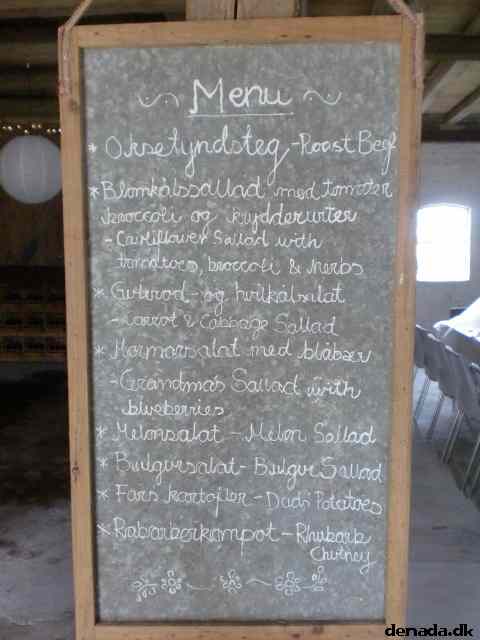 Menu
* Oksetyndsteg - Roast Beef
* Blomkålssallad med tomater
broccoli og krydderurter
- Cauliflower Sallad with
tomatoes, broccoli & herbs
* Gulerod- og hvidkålsalat
- Carrot & Cabbage Sallad
* Mormorsalat med blåbær
- Grandmas Sallad with
blueberries
* Melonsalat - Melon Sallad
* Bulgursalat - Bulgur Sallad
* Fars kartofler - Dads Potatoes
* Rabarberkompot - Rhubarb
Chutney
denada.dk